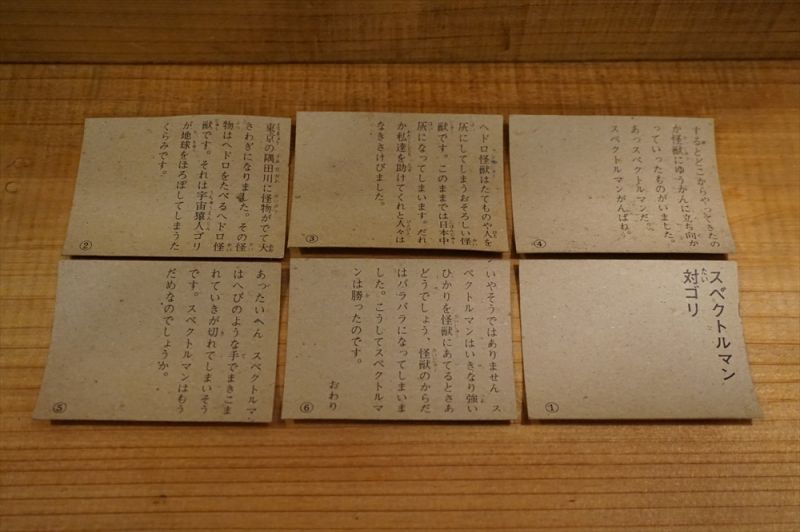 スペクトルマン
対ゴリ
①
東京の隅田川に怪物がでて大
さわぎになりました。その怪
物はヘドロをたべるヘドロ怪
獣です。それは宇宙猿人ゴリ
が地球をほろぼしてしまうた
くらみです。
②
ヘドロ怪獣はたてものや人を
灰にしてしまうおそろしい怪
獣です。このままでは日本中
灰になってしまいます。だれ
か私達を助けてくれと人々は
なきさけびました。
③
するとどこからやってきたの
か怪獣にゆうかんに立ち向か
っていったものがいました。
あっスペクトルマンだ。
スペクトルマンがんばれ。
④
あったいへん スペクトルマ
はへびのような手でまきこま
れていきが切れてしまいそう
です。スペクトルマンはもう
だめなのでしょうか。
⑤
いやそうではありません ス
ペクトルマンはいきなり強い
ひかりを怪獣にあてるとさあ
どうでしょう、怪獣のからだ
はバラバラになってしまいま
した。こうしてスペクトルマ
ンは勝ったのです。
おわり
⑥